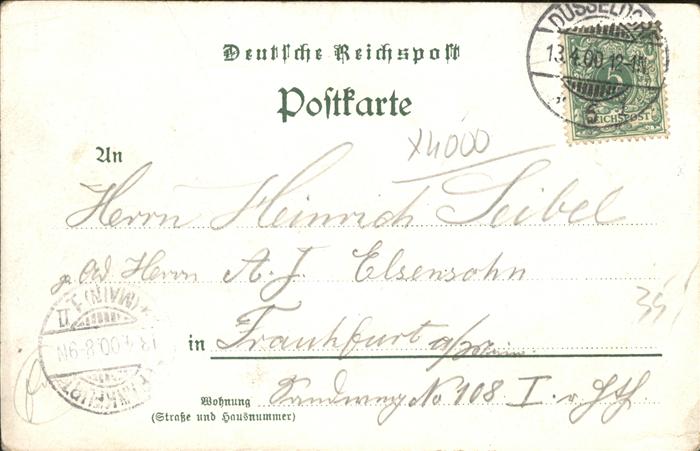 Deutsche Reichspost
Postkarte
DÜSSELDORF
13.4.00.12-1N.
5
REICHSPOST
X4000
An
Herrn Heinrich Seibel
p. Ad. Herrn A. J. Elsensohn
35
in Frankfurt a/Main
FRANKFURT (MAIN) 1
II
13.4.00.8-9N
Wohnung Sandweg No 108 I. v.
(Straße und Hausnummer)